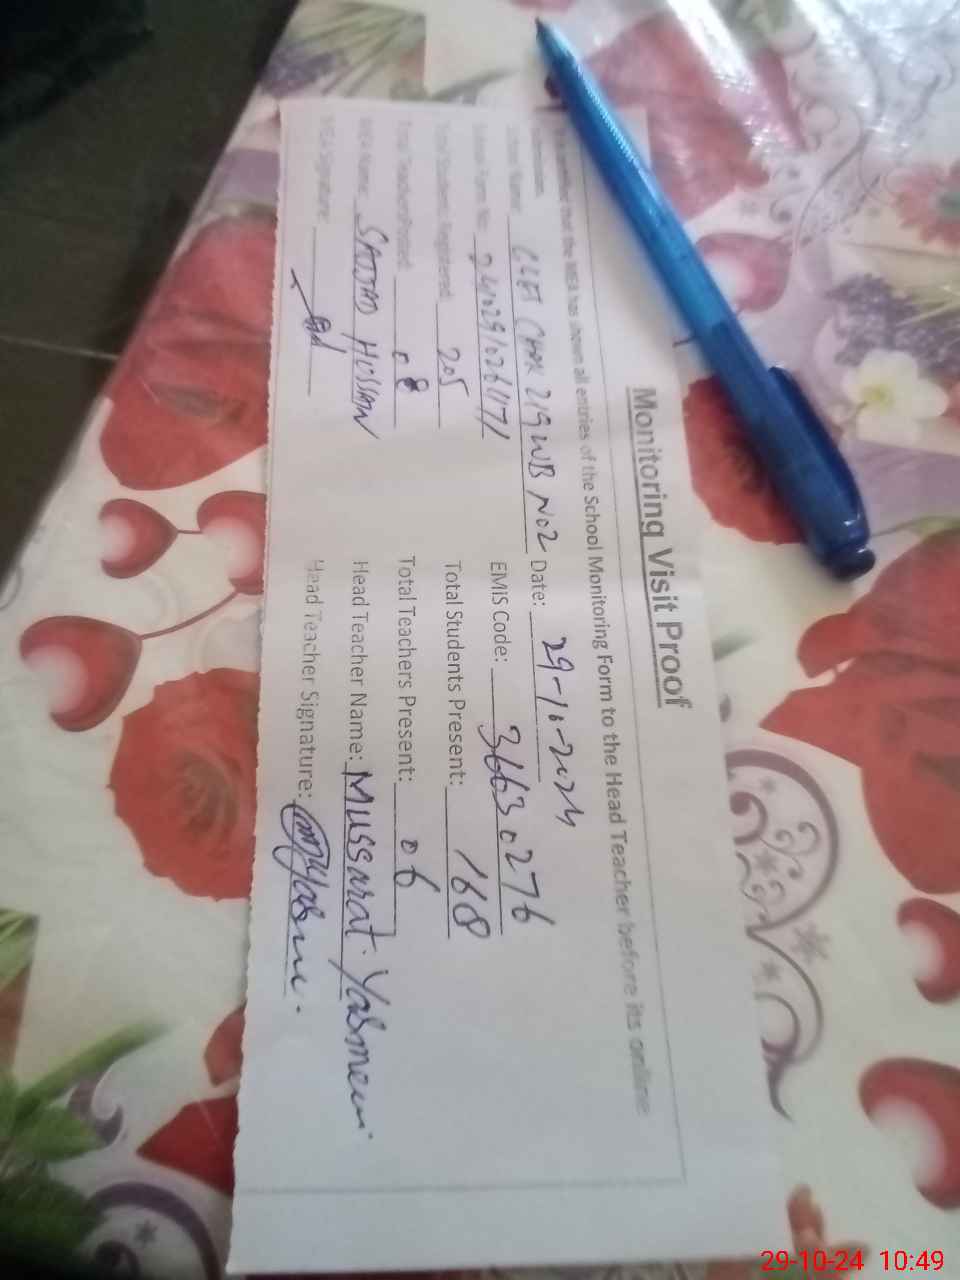 Monitoring Visit Proof
that the MEA has shown all entries of the School Monitoring Form to the Head Teacher before its online
Name: CHAK 219 WB No2 Date: 29-10-2024
Form No: EMIS Code: 36630276
Total Students Registered: 205 Total Students Present: 168
Total Teachers Posted: 08 Total Teachers Present: 06
MEA Name: SAJJAD HUSSAIN Head Teacher Name: Mussarat Yasmeen
MEA Signature: Head Teacher Signature:
29-10-24 10:49